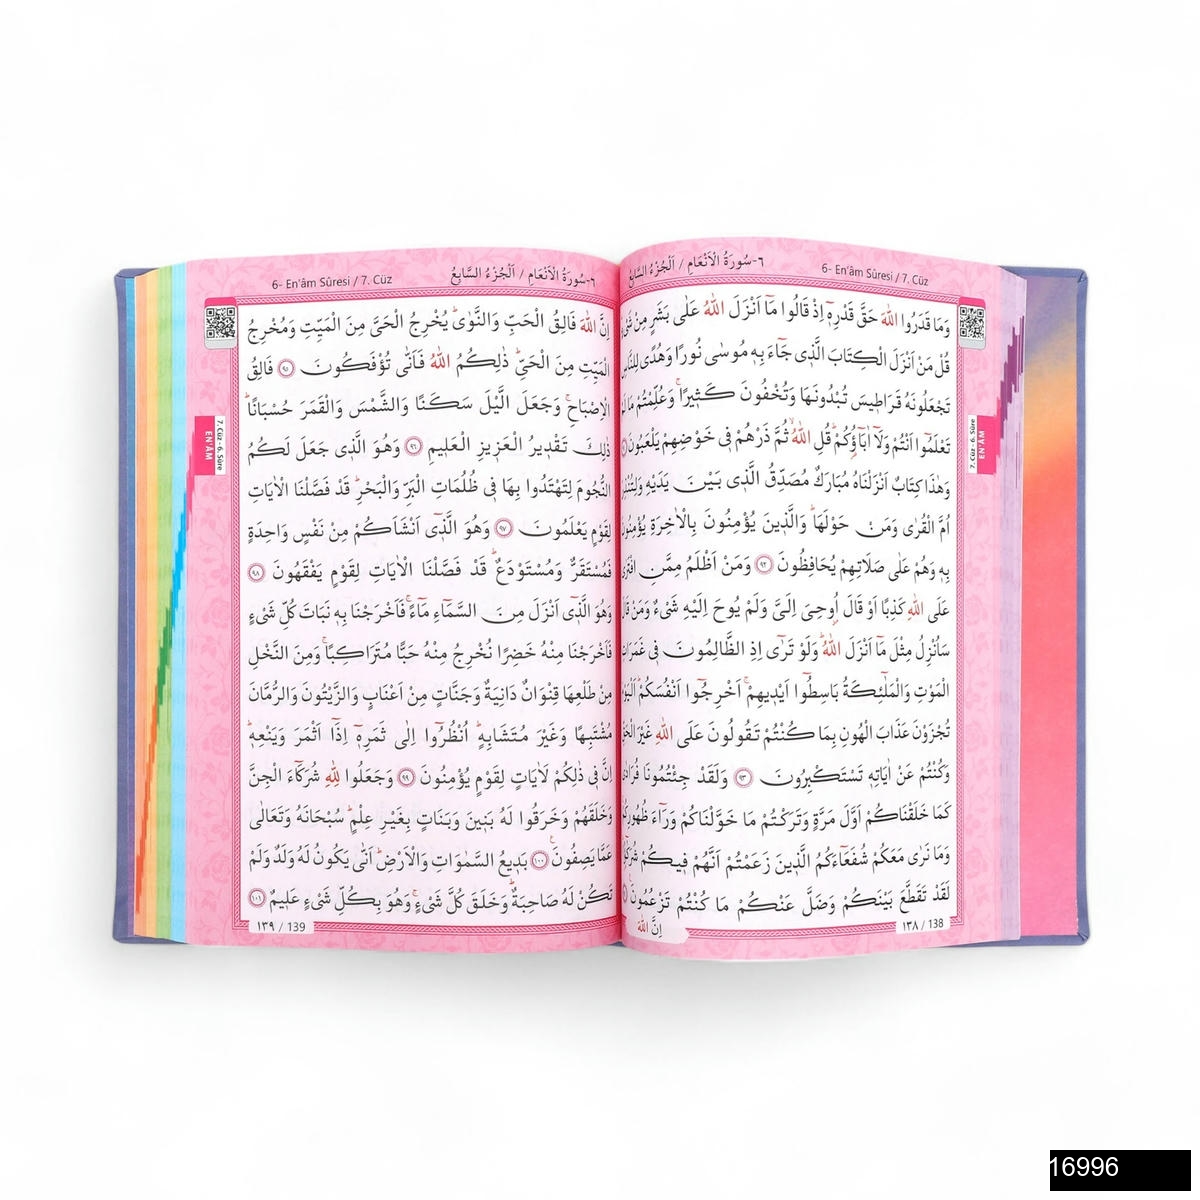 ٦-سُورَةُ الْاَنْعَامِ / اَلْجُزْءُ السَّابِعُ
6- En'âm Sûresi / 7. Cüz
وَمَا قَدَرُوا اللّٰهَ حَقَّ قَدْرِهٖٓ اِذْ قَالُوا مَٓا اَنْزَلَ اللّٰهُ عَلٰى بَشَرٍ مِنْ
قُلْ مَنْ اَنْزَلَ الْكِتَابَ الَّذٖى جَٓاءَ بِهٖ مُوسٰى نُورًا وَهُدًى لِلنَّاسِ
تَجْعَلُونَهُ قَرَاطٖيسَ تُبْدُونَهَا وَتُخْفُونَ كَثٖيرًاۚ وَعُلِّمْتُمْ مَا
تَعْلَمُٓوا اَنْتُمْ وَلَٓا اٰبَٓاؤُ۬كُمْۜ قُلِ اللّٰهُۙ ثُمَّ ذَرْهُمْ فٖى خَوْضِهِمْ يَلْعَبُونَ
وَهٰذَا كِتَابٌ اَنْزَلْنَاهُ مُبَارَكٌ مُصَدِّقُ الَّذٖى بَيْنَ يَدَيْهِ وَلِتُنْذِرَ
اُمَّ الْقُرٰى وَمَنْ حَوْلَهَاۜ وَالَّذٖينَ يُؤْمِنُونَ بِالْاٰخِرَةِ يُؤْمِنُونَ
بِهٖ وَهُمْ عَلٰى صَلَاتِهِمْ يُحَافِظُونَ ٩٢ وَمَنْ اَظْلَمُ مِمَّنِ افْتَرٰى
عَلَى اللّٰهِ كَذِبًا اَوْ قَالَ اُو۫حِىَ اِلَىَّ وَلَمْ يُوحَ اِلَيْهِ شَىْءٌ وَمَنْ قَالَ
سَاُنْزِلُ مِثْلَ مَٓا اَنْزَلَ اللّٰهُۜ وَلَوْ تَرٰٓى اِذِ الظَّالِمُونَ فٖى غَمَرَاتِ
الْمَوْتِ وَالْمَلٰٓئِكَةُ بَاسِطُٓوا اَيْدٖيهِمْۚ اَخْرِجُٓوا اَنْفُسَكُمْۜ اَلْيَوْمَ
تُجْزَوْنَ عَذَابَ الْهُونِ بِمَا كُنْتُمْ تَقُولُونَ عَلَى اللّٰهِ غَيْرَ الْحَقِّ
وَكُنْتُمْ عَنْ اٰيَاتِهٖ تَسْتَكْبِرُونَ ٩٣ وَلَقَدْ جِئْتُمُونَا فُرَادٰى
كَمَا خَلَقْنَاكُمْ اَوَّلَ مَرَّةٍ وَتَرَكْتُمْ مَا خَوَّلْنَاكُمْ وَرَٓاءَ ظُهُورِكُمْ
وَمَا نَرٰى مَعَكُمْ شُفَعَٓاءَكُمُ الَّذٖينَ زَعَمْتُمْ اَنَّهُمْ فٖيكُمْ
لَقَدْ تَقَطَّعَ بَيْنَكُمْ وَضَلَّ عَنْكُمْ مَا كُنْتُمْ تَزْعُمُونَ
اِنَّ اللّٰهَ
١٣٨ / 138
7. Cüz - 6. Sûre
EN'ÂM
٦-سُورَةُ الْاَنْعَامِ / اَلْجُزْءُ السَّابِعُ
6- En'âm Sûresi / 7. Cüz
اِنَّ اللّٰهَ فَالِقُ الْحَبِّ وَالنَّوٰىۜ يُخْرِجُ الْحَىَّ مِنَ الْمَيِّتِ وَمُخْرِجُ
الْمَيِّتِ مِنَ الْحَىِّۜ ذٰلِكُمُ اللّٰهُ فَاَنّٰى تُؤْفَكُونَ ٩٥ فَالِقُ
الْاِصْبَاحِۚ وَجَعَلَ الَّيْلَ سَكَنًا وَالشَّمْسَ وَالْقَمَرَ حُسْبَانًاۜ
ذٰلِكَ تَقْدٖيرُ الْعَزٖيزِ الْعَلٖيمِ ٩٦ وَهُوَ الَّذٖى جَعَلَ لَكُمُ
النُّجُومَ لِتَهْتَدُوا بِهَا فٖى ظُلُمَاتِ الْبَرِّ وَالْبَحْرِۜ قَدْ فَصَّلْنَا الْاٰيَاتِ
لِقَوْمٍ يَعْلَمُونَ ٩٧ وَهُوَ الَّذٖٓى اَنْشَاَكُمْ مِنْ نَفْسٍ وَاحِدَةٍ
فَمُسْتَقَرٌّ وَمُسْتَوْدَعٌۜ قَدْ فَصَّلْنَا الْاٰيَاتِ لِقَوْمٍ يَفْقَهُونَ ٩٨
وَهُوَ الَّذٖٓى اَنْزَلَ مِنَ السَّمَٓاءِ مَٓاءًۚ فَاَخْرَجْنَا بِهٖ نَبَاتَ كُلِّ شَىْءٍ
فَاَخْرَجْنَا مِنْهُ خَضِرًا نُخْرِجُ مِنْهُ حَبًّا مُتَرَاكِبًاۚ وَمِنَ النَّخْلِ
مِنْ طَلْعِهَا قِنْوَانٌ دَانِيَةٌ وَجَنَّاتٍ مِنْ اَعْنَابٍ وَالزَّيْتُونَ وَالرُّمَّانَ
مُشْتَبِهًا وَغَيْرَ مُتَشَابِهٍۜ اُنْظُرُٓوا اِلٰى ثَمَرِهٖٓ اِذَٓا اَثْمَرَ وَيَنْعِهٖۜ
اِنَّ فٖى ذٰلِكُمْ لَاٰيَاتٍ لِقَوْمٍ يُؤْمِنُونَ ٩٩ وَجَعَلُوا لِلّٰهِ شُرَكَٓاءَ الْجِنَّ
وَخَلَقَهُمْ وَخَرَقُوا لَهُ بَنٖينَ وَبَنَاتٍ بِغَيْرِ عِلْمٍۜ سُبْحَانَهُ وَتَعَالٰى
عَمَّا يَصِفُونَۚ ١٠٠ بَدٖيعُ السَّمٰوَاتِ وَالْاَرْضِۜ اَنّٰى يَكُونُ لَهُ وَلَدٌ وَلَمْ
تَكُنْ لَهُ صَاحِبَةٌۜ وَخَلَقَ كُلَّ شَىْءٍۚ وَهُوَ بِكُلِّ شَىْءٍ عَلٖيمٌ ١٠١
١٣٩ / 139
7. Cüz - 6. Sûre
EN'ÂM
16996